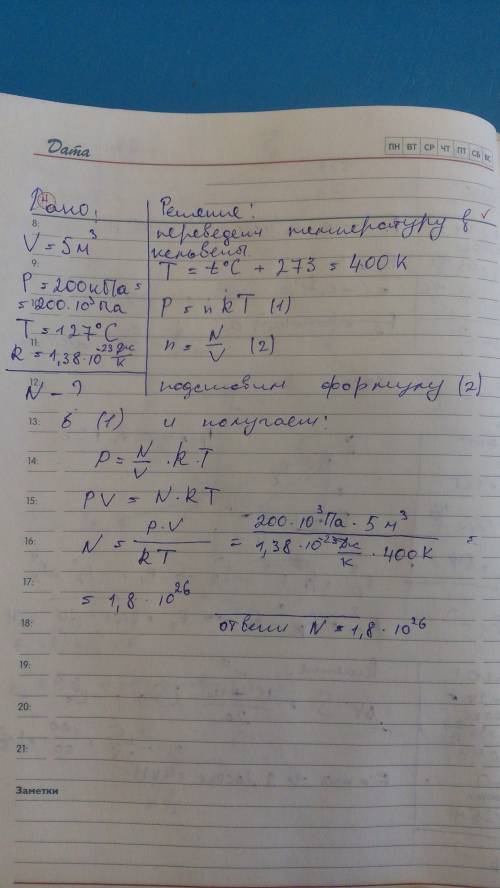 Дата
ПН ВТ СР ЧТ ПТ СБ ВС
Дано:
V = 5 м³
P = 200 кПа =
= 200·10³ Па
T = 127°C
k = 1,38·10⁻²³ Дж/К
N - ?
Решение:
переведем температуру в
кельвены
T = t°C + 273 = 400 К
P = n k T (1)
n = N/V (2)
подставим формулу (2)
в (1) и получаем:
P = N/V · k · T
PV = N · k T
N = P·V / kT = 200·10³ Па · 5 м³ / 1,38·10⁻²³ Дж/К · 400 К =
= 1,8 · 10²⁶
ответ: N = 1,8 · 10²⁶
8:
9:
11:
12:
13:
14:
15:
16:
17:
18:
19:
20:
21:
Заметки